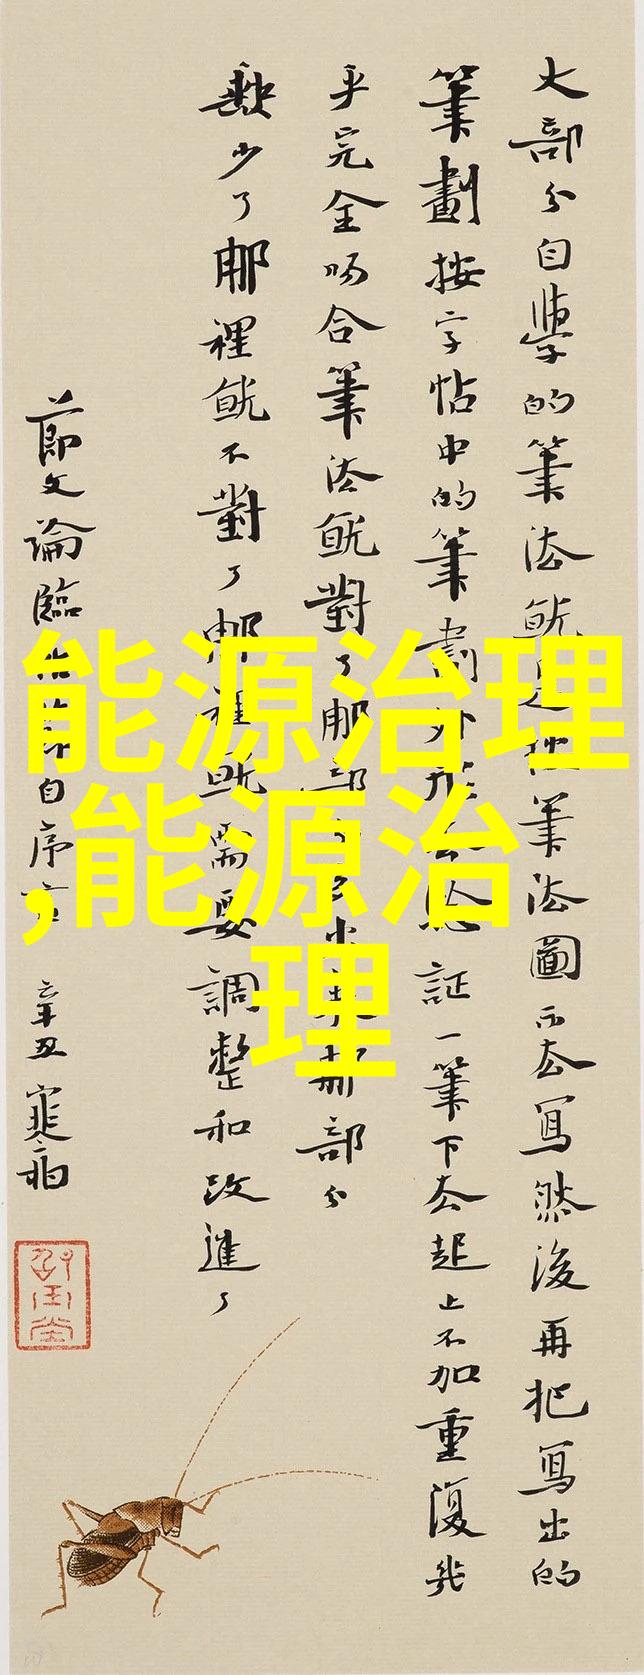 大部分自學的筆法就是按筆法圖示去寫然後再把寫出的
筆劃按字帖中的筆劃外形去証一筆下去起上不加重復幾
乎完全吻合筆法就對了那部出來那部分
歟少了那裡就不對了那裡就需要調整和改進了
節文論臨帖自序言 辛丑 寒
能源治理
,能源治
理